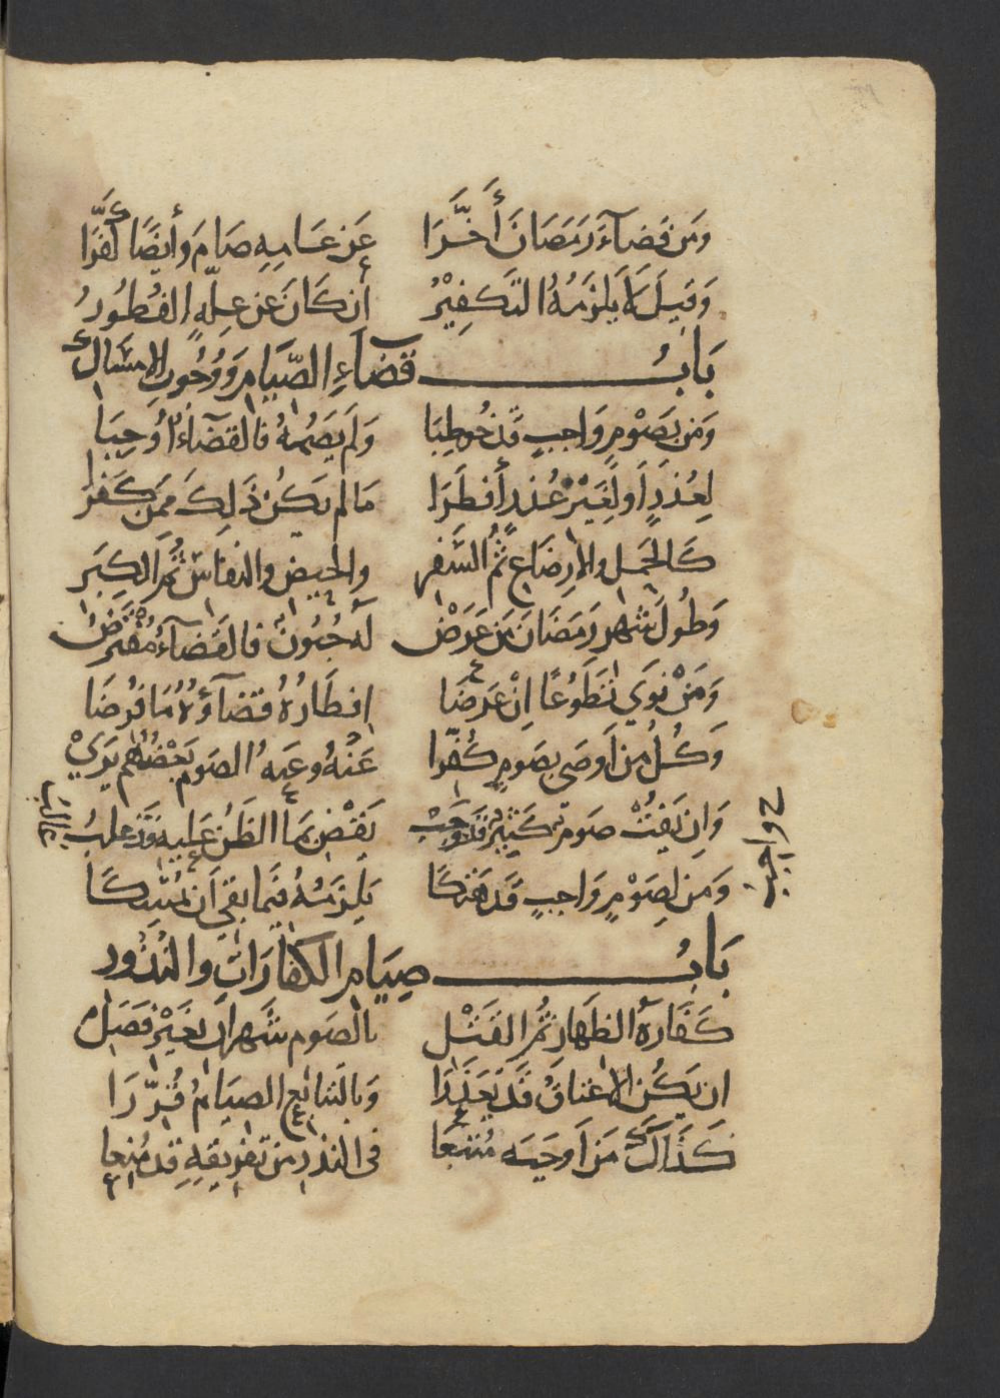 وَمَن قَضَآءَ رَمَضَانَ أَخَّرَا عَن عَامِهِ صَامَ وَأَيضًا كَفَّرَا
وَقِيلَ لَا يَلزَمُهُ التَكفِيْرُ إن كَانَ عَن عِلَّةٍ الفُطُورُ
بَابُ قضَآءِ الصِّيَامِ وَوُجُوبِ الامتثال
وَمَن بصَوْمٍ وَاجبٍ قَد خُوطِبَا وَلَم يَصُمْهُ فالقضَآءُ أُوجِبَا
لِعُذرٍ اَو لِغَيْرِ عُذرٍ أَفطَرَا مَا لم يَكُن ذَلِكَ مِمَّن كَفَرَا
كَالحَمل والارضَاعِ ثُمَّ السَّفرِ والحَيضِ والنفاسِ ثُمَّ الكِبَرِ
وَطُولَ شَهرِ رَمَضَانَ مَن عَرَضْ لَه جُنُونٌ فالقَضآءُ مُفْتَرَضْ
وَمَنْ نوَي تَطَوُعًا اِنْ عَرَضَا افطَارُهُ قَضَآؤُهُ مَا فُرِضَا
وَكُلُ مَن اَوصَى بصَومٍ كُفِّرا عَنْهُ وعَنه الصوم بَعْضُهُم يَرَيْ
وَاِن يَفُتْ صَوم كَثِيْرٌ قَد وَجَبْ يَقْضِ بمَا الظَنُ عَلَيهِ قد غلبْ
وَمَن لِصَوْمٍ وَاجبٍ قَد هَتَكَا يَلزَمُهُ فِيمَا بقَيَ اَن يُمْسِكَا
بَابُ صِيَامِ الكَفَّارَاتِ والنُذُورِ
كَفَّارةُ الظهَارِ ثُمَّ القَتْلِ بالصَومِ شَهرانِ بغَيْرِ فَصْلِ
ان يَكُنِ الاعتاقُ قَد تَعَذَّرَا وَبالتتابُعِ الصِيَامُ قُرِّرَا
كَذَاكَ مَن اَوجَبَه مُتَتبَعا في النذرِ من تَفرِيقِهِ قد مُنِعا